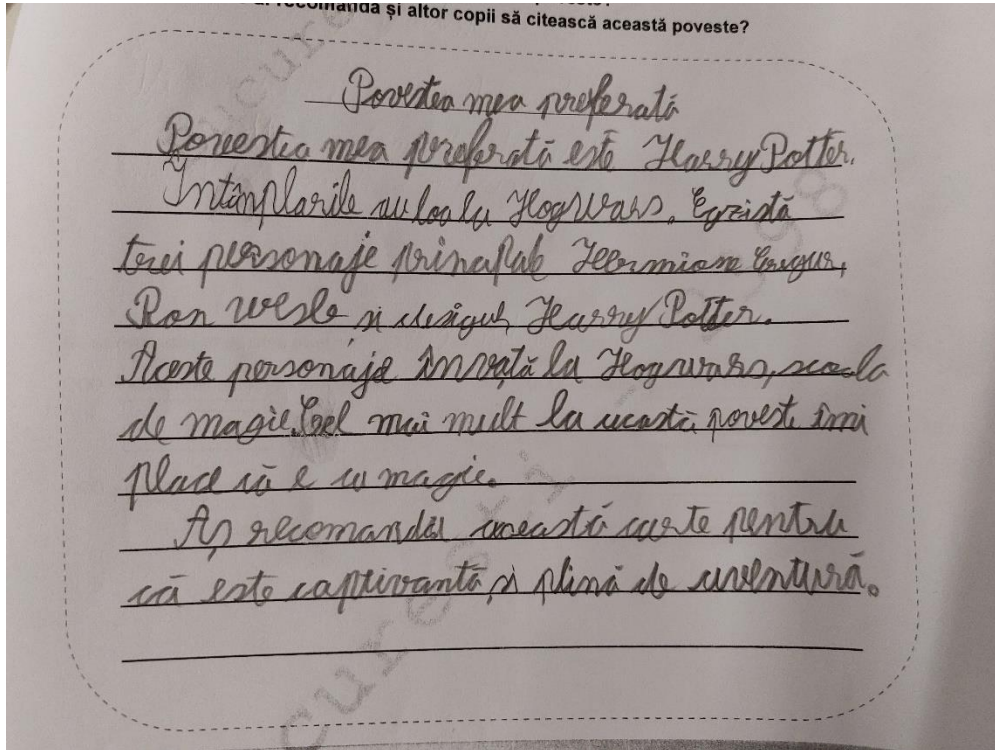 recomanda și altor copii să citească această poveste?
Povestea mea preferată
Povestea mea preferată este Harry Potter.
Întâmplarile au loc la Hogwars. Egzistă
trei personaje principale Hermione
Ron Wesle și desigur, Harry Potter.
Aceste personaje învață la Hogwars, scoala
de magie. Cel mai mult la acastă poveste îmi
place că e cu magie.
Aș recomanda această carte pentru
că este captivantă și plină de aventură.